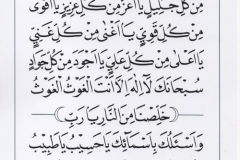 مِنْ كُلِّ جَلِيْلٍ يَا اَعَزَّ مِنْ كُلِّ عَزِيْزٍ يَا اَقْوٰى
مِنْ كُلِّ قَوِيٍّ يَا اَغْنٰى مِنْ كُلِّ غَنِيٍّ
يَا اَعْلٰى مِنْ كُلِّ عَلِيٍّ يَا اَجْوَدَ مِنْ كُلِّ جَوَادٍ
سُبْحَانَكَ لَا اِلٰهَ اِلَّا اَنْتَ الْغَوْثُ الْغَوْثُ
خَلِّصْنَا مِنَ النَّارِ يَا رَبِّ
وَاَسْئَلُكَ بِاَسْمَائِكَ يَا حَسِيْبُ يَا طَبِيْبُ